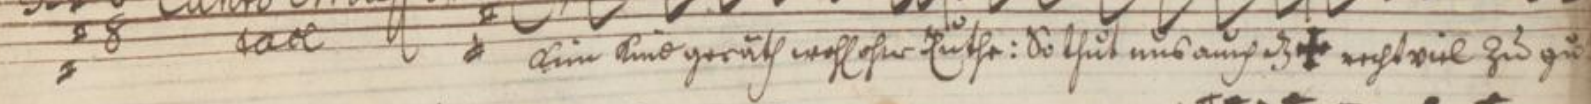 8 tacet
Kein Kind geräth wohl ohne Ruthe: So thut uns auch dz ✝ recht viel zu gu